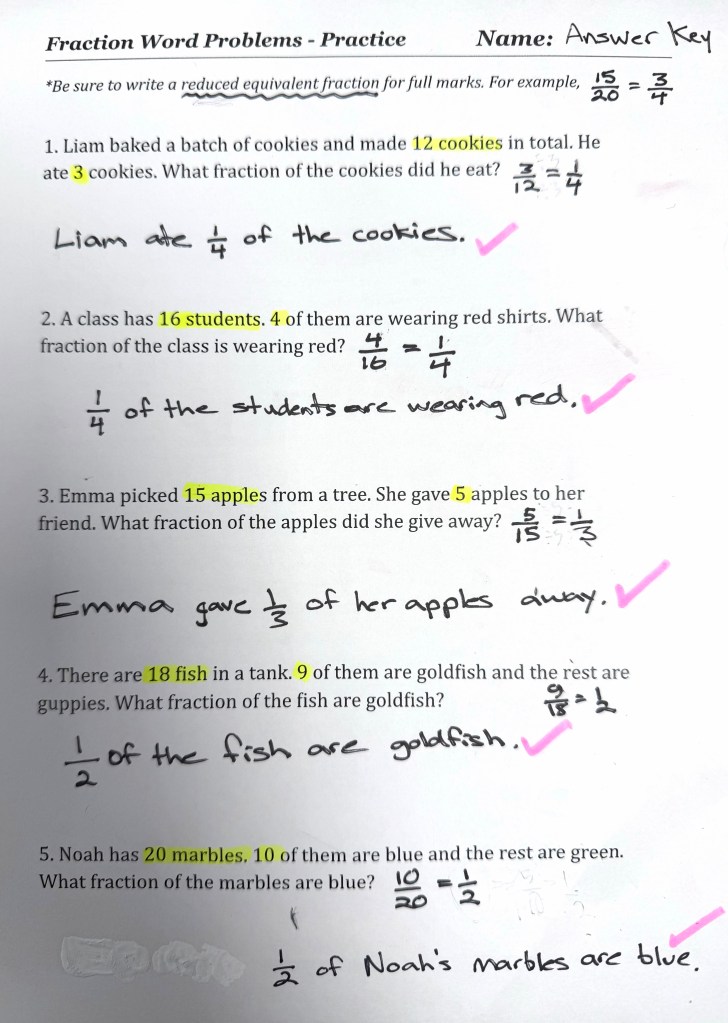 Fraction Word Problems - Practice Name: Answer Key
*Be sure to write a reduced equivalent fraction for full marks. For example, 15/20 = 3/4
1. Liam baked a batch of cookies and made 12 cookies in total. He
ate 3 cookies. What fraction of the cookies did he eat? 3/12 = 1/4
Liam ate 1/4 of the cookies.
2. A class has 16 students. 4 of them are wearing red shirts. What
fraction of the class is wearing red? 4/16 = 1/4
1/4 of the students are wearing red.
3. Emma picked 15 apples from a tree. She gave 5 apples to her
friend. What fraction of the apples did she give away? 5/15 = 1/3
Emma gave 1/3 of her apples away.
4. There are 18 fish in a tank. 9 of them are goldfish and the rest are
guppies. What fraction of the fish are goldfish? 9/18 = 1/2
1/2 of the fish are goldfish.
5. Noah has 20 marbles. 10 of them are blue and the rest are green.
What fraction of the marbles are blue? 10/20 = 1/2
1/2 of Noah's marbles are blue.